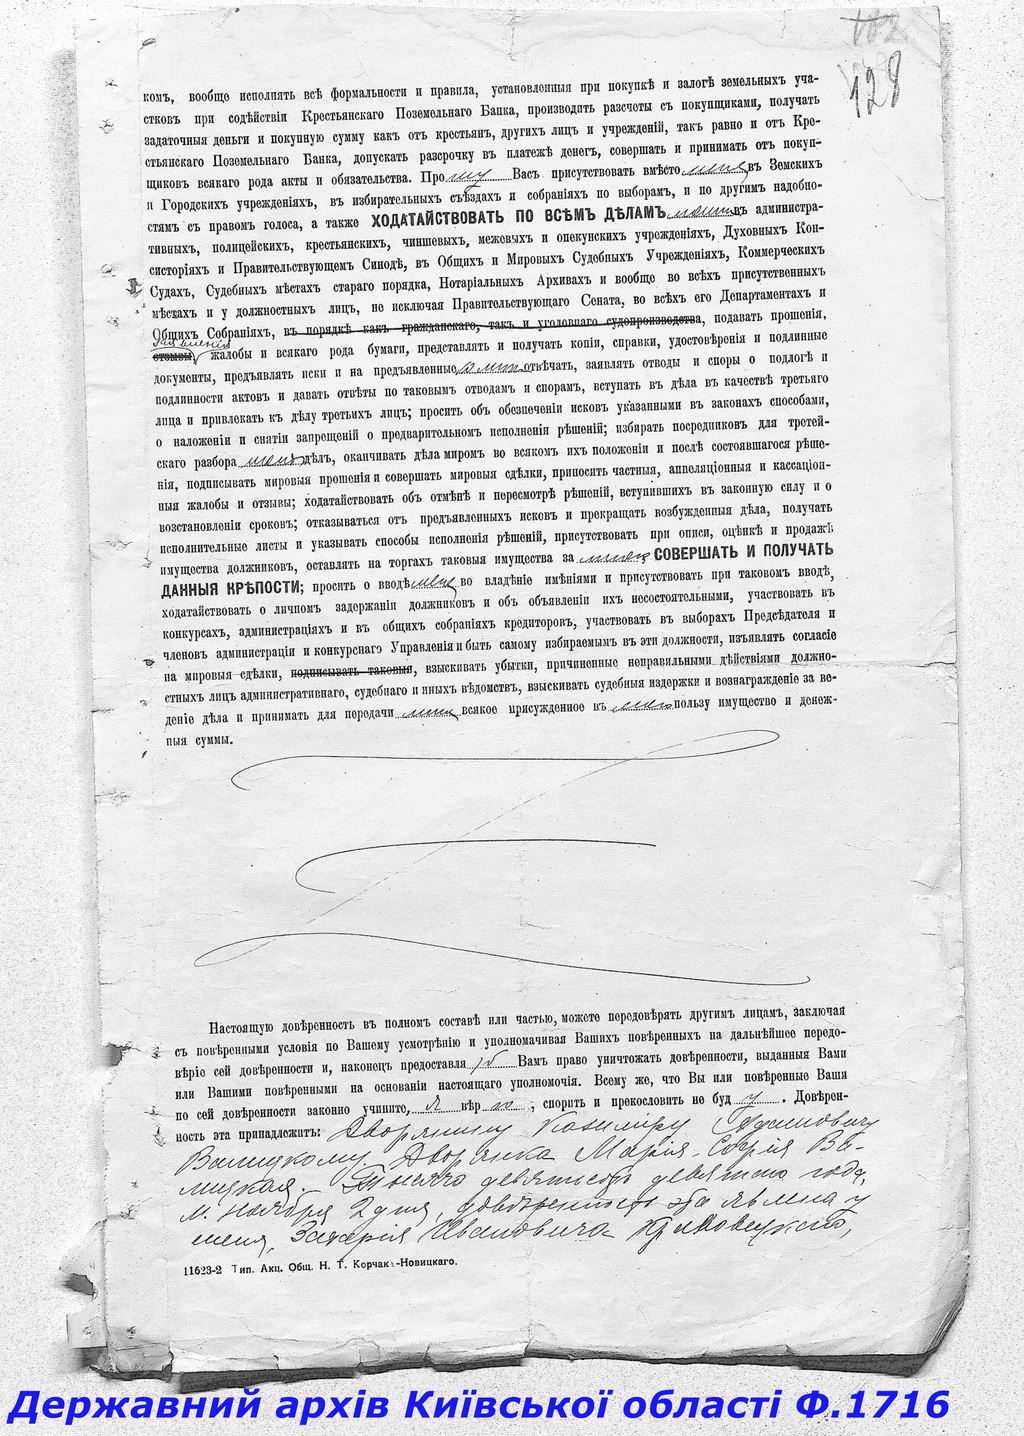 128
комъ, вообще исполнять всѣ формальности и правила, установленныя при покупкѣ и залогѣ земельныхъ уча-
стковъ при содѣйствіи Крестьянскаго Поземельнаго Банка, производить разсчеты съ покупщиками, получать
задаточныя деньги и покупную сумму какъ отъ крестьянъ, другихъ лицъ и учрежденій, такъ равно и отъ Кре-
стьянскаго Поземельнаго Банка, допускать разсрочку въ платежѣ денегъ, совершать и принимать отъ покуп-
щиковъ всякаго рода акты и обязательства. Прошу Васъ присутствовать вмѣсто меня въ Земскихъ
и Городскихъ учрежденіяхъ, въ избирательныхъ съѣздахъ и собраніяхъ по выборамъ, и по другимъ надобно-
стямъ съ правомъ голоса, а также ХОДАТАЙСТВОВАТЬ ПО ВСѢМЪ ДѢЛАМЪ моимъ въ администра-
тивныхъ, полицейскихъ, крестьянскихъ, чиншевыхъ, межовыхъ и опекунскихъ учрежденіяхъ, Духовныхъ Кон-
систоріяхъ и Правительствующемъ Синодѣ, въ Общихъ и Мировыхъ Судебныхъ Учрежденіяхъ, Коммерческихъ
Судахъ, Судебныхъ мѣстахъ стараго порядка, Нотаріальныхъ Архивахъ и вообще во всѣхъ присутственныхъ
мѣстахъ и у должностныхъ лицъ, не исключая Правительствующаго Сената, во всѣхъ его Департаментахъ и
Общихъ Собраніяхъ, въ порядкѣ какъ гражданскаго, такъ и уголовнаго судопроизводства, подавать прошенія,
заявленія
отзывы, жалобы и всякаго рода бумаги, представлять и получать копіи, справки, удостовѣренія и подлинные
документы, предъявлять иски и на предъявленные ко мнѣ отвѣчать, заявлять отводы и споры о подлогѣ и
подлинности актовъ и давать отвѣты по таковымъ отводамъ и спорамъ, вступать въ дѣла въ качествѣ третьяго
лица и привлекать къ дѣлу третьихъ лицъ; просить объ обезпеченіи исковъ указанными въ законахъ способами,
о наложеніи и снятіи запрещеній о предварительномъ исполненіи рѣшеній; избирать посредниковъ для третей-
скаго разбора моихъ дѣлъ, оканчивать дѣла миромъ во всякомъ ихъ положеніи и послѣ состоявшагося рѣше-
нія, подписывать мировыя прошенія и совершать мировыя сдѣлки, приносить частныя, аппеляціонныя и кассаціон-
ныя жалобы и отзывы; ходатайствовать объ отмѣнѣ и пересмотрѣ рѣшеній, вступившихъ въ законную силу и о
возстановленіи сроковъ; отказываться отъ предъявленныхъ исковъ и прекращать возбужденныя дѣла, получать
исполнительные листы и указывать способы исполненія рѣшеній, присутствовать при описи, оцѣнкѣ и продажѣ
имущества должниковъ, оставлять на торгахъ таковыя имущества за мною, СОВЕРШАТЬ И ПОЛУЧАТЬ
ДАННЫЯ КРѢПОСТИ; просить о вводѣ меня во владѣніе имѣніями и присутствовать при таковомъ вводѣ,
ходатайствовать о личномъ задержаніи должниковъ и объ объявленіи ихъ несостоятельными, участвовать въ
конкурсахъ, администраціяхъ и въ общихъ собраніяхъ кредиторовъ, участвовать въ выборахъ Предсѣдателя и
членовъ администраціи и конкурснаго Управленія и быть самому избираемымъ въ эти должности, изъявлять согласіе
на мировыя сдѣлки, подписывать таковыя, взыскивать убытки, причиненные неправильными дѣйствіями должно-
стныхъ лицъ административнаго, судебнаго и иныхъ вѣдомствъ, взыскивать судебныя издержки и вознагражденіе за ве-
деніе дѣла и принимать для передачи мнѣ всякое присужденное въ мою пользу имущество и денеж-
ныя суммы.
Настоящую довѣренность въ полномъ составѣ или частью, можете передовѣрять другимъ лицамъ, заключая
съ повѣренными условія по Вашему усмотрѣнію и уполномачивая Вашихъ повѣренныхъ на дальнѣйшее передо-
вѣріе сей довѣренности и, наконецъ предоставляю Вамъ право уничтожать довѣренности, выданныя Вами
или Вашими повѣренными на основаніи настоящаго уполномочія. Всему же, что Вы или повѣренные Ваши
по сей довѣренности законно учините, я вѣрю, спорить и прекословить не буду. Довѣрен-
ность эта принадлежитъ: Дворянину Казиміру Адамовичу
Валицкому. Дворянка Марія-Софія Ва-
лицкая. Тысяча девятьсотъ девятаго года,
м. Ноября 2 дня, довѣренность эта явлена у
меня, Захарія Ивановича Криковецкаго,
11623-2 Тип. Акц. Общ. Н. Т. Корчакъ-Новицкаго.
Державний архів Київської області Ф.1716